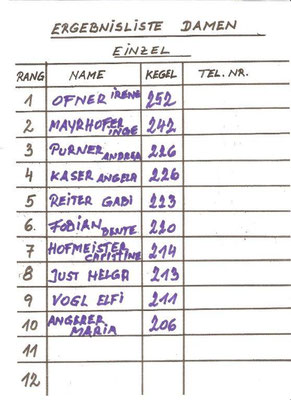 ERGEBNISLISTE DAMEN
EINZEL
RANG NAME KEGEL TEL. NR.
1 OFNER IRENE 252
2 MAYRHOFER INGE 242
3 PURNER ANDREA 226
4 KASER ANGELA 226
5 REITER GABI 223
6. FABIAN BENTE 220
7 HOFMEISTER CHRISTINE 214
8 JUST HELGA 213
9 VOGL ELFI 211
10 ANGERER MARIA 206
11
12